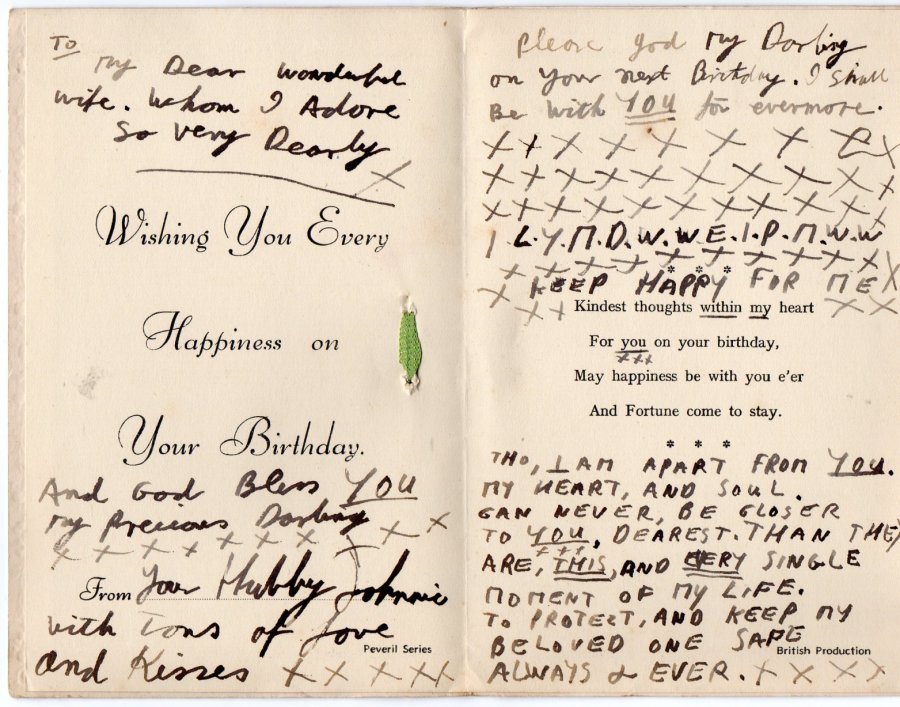 To
My Dear wonderful
wife. Whom I Adore
So very Dearly
X
Wishing You Every
Happiness on
Your Birthday.
And God Bless YOU
My Precious Darling X X X
X X X X X X X X
From Your Hubby Johnnie
with Tons of Love
Peveril Series
and Kisses X X X X X
Please god My Darling
on Your next Birthday. I shall
Be with YOU for evermore.
X X X X X X X X X
X X X X X X X X X X
X X X X X X X X X X X
I.L.Y.M.D.W.W.E.I.P.M.W.W
X X X X X X X X X X
* * *
KEEP HAPPY FOR ME
Kindest thoughts within my heart
X X X X X
For you on your birthday,
X X X
May happiness be with you e'er
And Fortune come to stay.
* * *
THO, I AM APART FROM YOU.
MY HEART, AND SOUL.
CAN NEVER, BE CLOSER
TO YOU, DEAREST. THAN THEY
X X X
ARE, THIS, AND EVERY SINGLE
MOMENT OF MY LIFE.
TO PROTECT, AND KEEP MY
BELOVED ONE SAFE
British Production
ALWAYS & EVER. X X X X